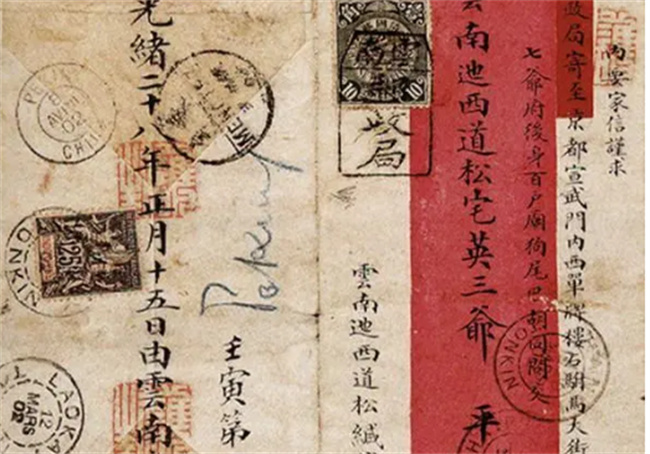 內要家信謹求
政局寄至京都宣武門內西單牌樓石駙馬大街
七爺府後身百戶廟狗尾巴胡同
雲南迆西道松宅英三爺 平
10 10
政局
雲南迆西道松緘
壬寅第
Peking
光緒二十八年正月十五日由雲南
PEKIN
AVRIL
02
ONKIN
25
LAOKA
12
MARS
02
ONKIN